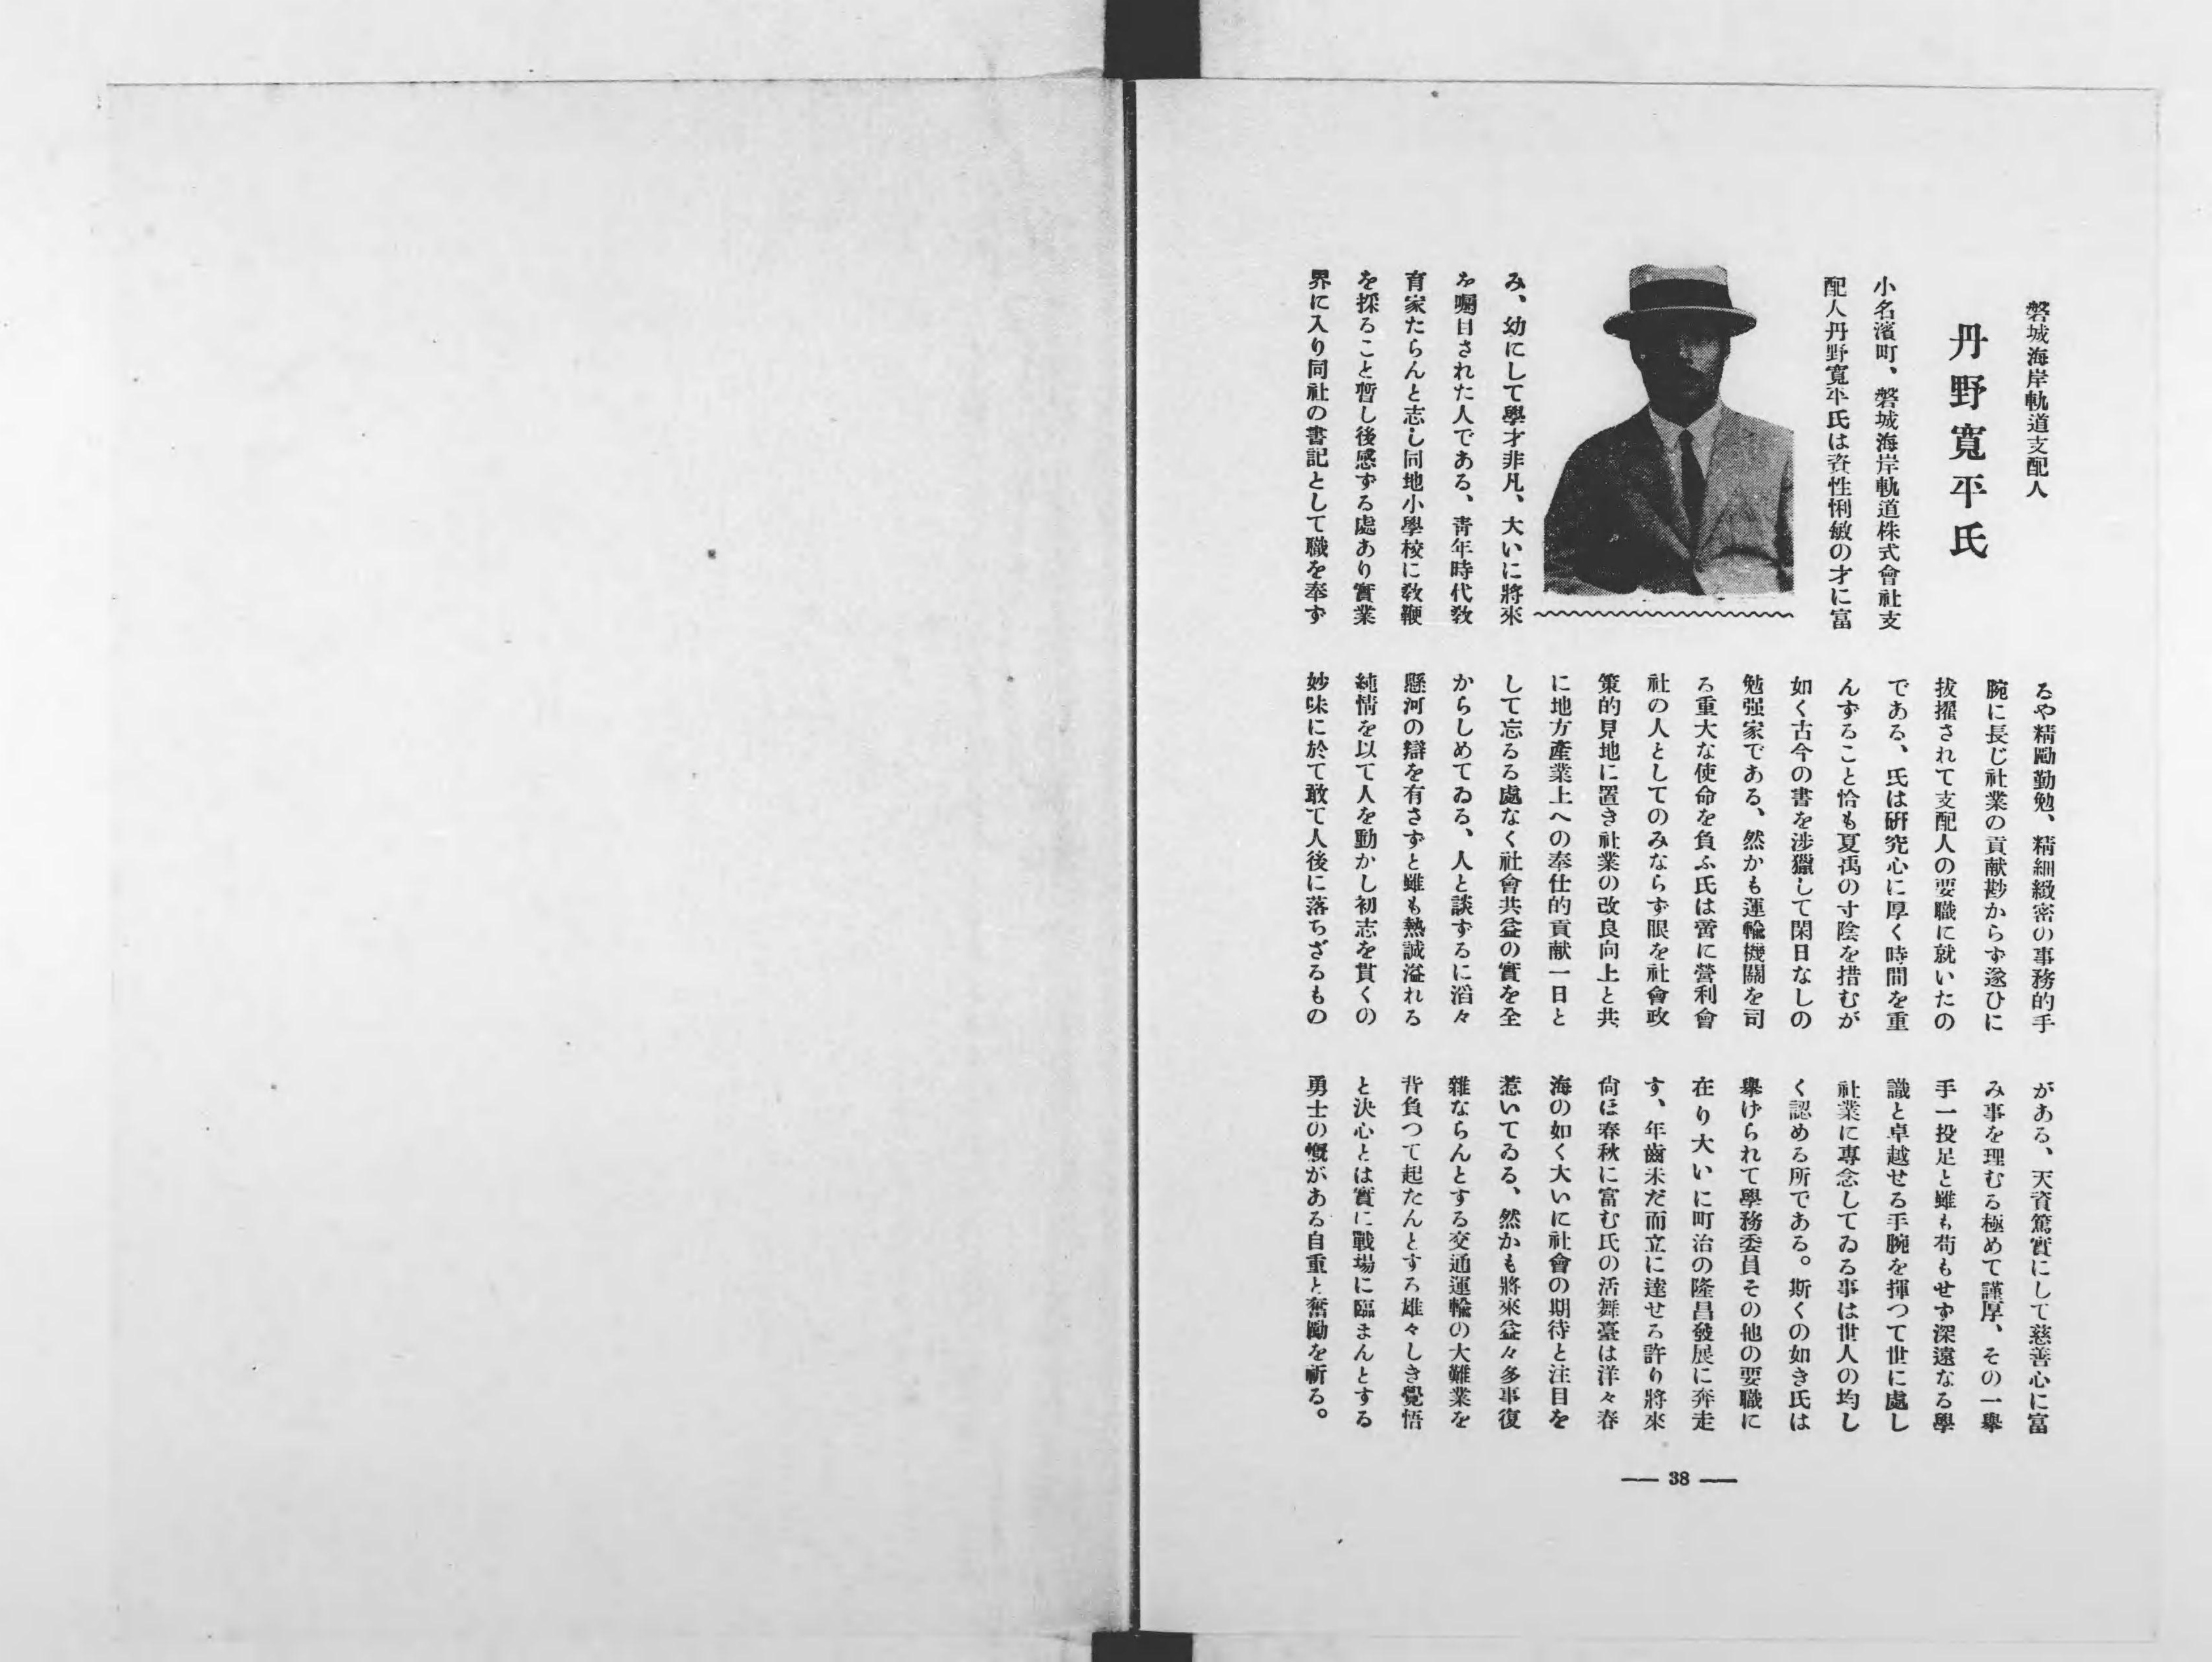 磐城海岸軌道支配人
丹野寬平氏
小名濱町、磐城海岸軌道株式會社支
配人丹野寬平氏は資性悧敏の才に富
み、幼にして學才非凡、大いに將來
を囑目された人である、靑年時代敎
育家たらんと志し同地小學校に敎鞭
を採ること暫し後感ずる處あり實業
界に入り同社の書記として職を奉ず
るや精勵勤勉、精細緻密の事務的手
腕に長じ社業の貢献尠からず遂ひに
拔擢されて支配人の要職に就いたの
である、氏は硏究心に厚く時間を重
んずること恰も夏禹の寸陰を措むが
如く古今の書を涉獵して閑日なしの
勉强家である、然かも運輸機關を司
る重大な使命を負ふ氏は啻に營利會
社の人としてのみならず眼を社會政
策的見地に置き社業の改良向上と共
に地方產業上への奉仕的貢献一日と
して忘るる處なく社會共益の實を全
からしめてゐる、人と談ずるに滔々
懸河の辯を有さずと雖も熱誠溢れる
純情を以て人を動かし初志を貫くの
妙味に於て敢て人後に落ちざるもの
がある、天資篤實にして慈善心に富
み事を理むる極めて謹厚、その一擧
手一投足と雖も苟もせず深遠なる學
識と卓越せる手腕を揮つて世に處し
社業に專念してゐる事は世人の均し
く認める所である。斯くの如き氏は
擧けられて學務委員その他の要職に
在り大いに町治の隆昌發展に奔走
す、年齒未だ而立に達せる許り將來
尙ほ春秋に富む氏の活舞臺は洋々春
海の如く大いに社會の期待と注目を
惹いてゐる、然かも將來益々多事復
雜ならんとする交通運輸の大難業を
背負つて起たんとする雄々しき覺悟
と決心とは實に戰場に臨まんとする
勇士の慨がある自重と奮勵を祈る。
— 38 —